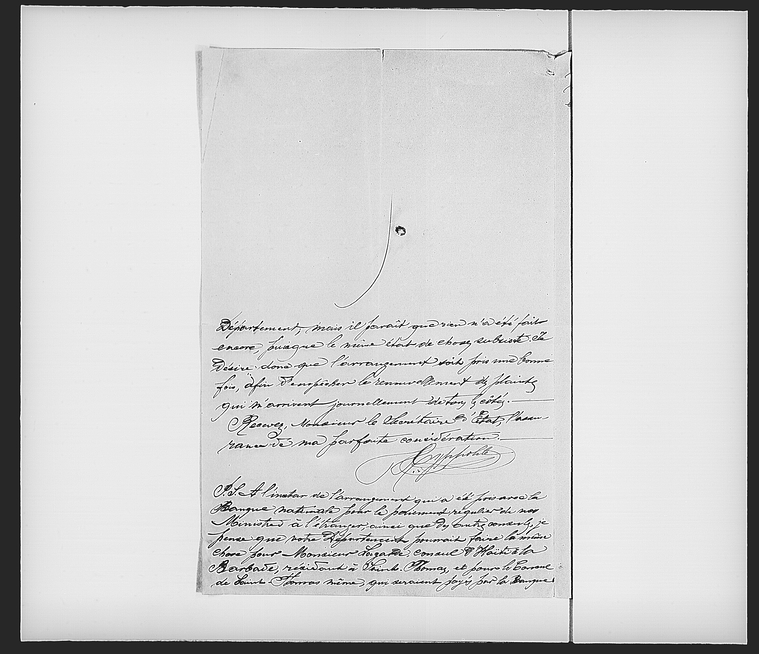 Département, mais il paraît que rien n'a été fait
encore, puisque le même état de choses subsiste. Je
désire donc que l'arrangement soit pris une bonne
fois, afin d'empêcher le renouvellement des plaintes
qui m'arrivent journellement de tous les côtés.
Recevez, Monsieur le Secrétaire d'Etat, l'assu-
rance de ma parfaite considération.
Hyppolite
P.S. A l'instar de l'arrangement qui a été pris avec la
Banque nationale pour le paiement régulier de nos
Ministres à l'étranger, ainsi que des autres consuls, je
pense que votre Département pourrait faire la même
chose pour Monsieur consul d'Haïti à la
Barbade, résidant à Saint-Thomas, et pour le Consul
de Saint-Thomas même, qui seraient payés par la Banque